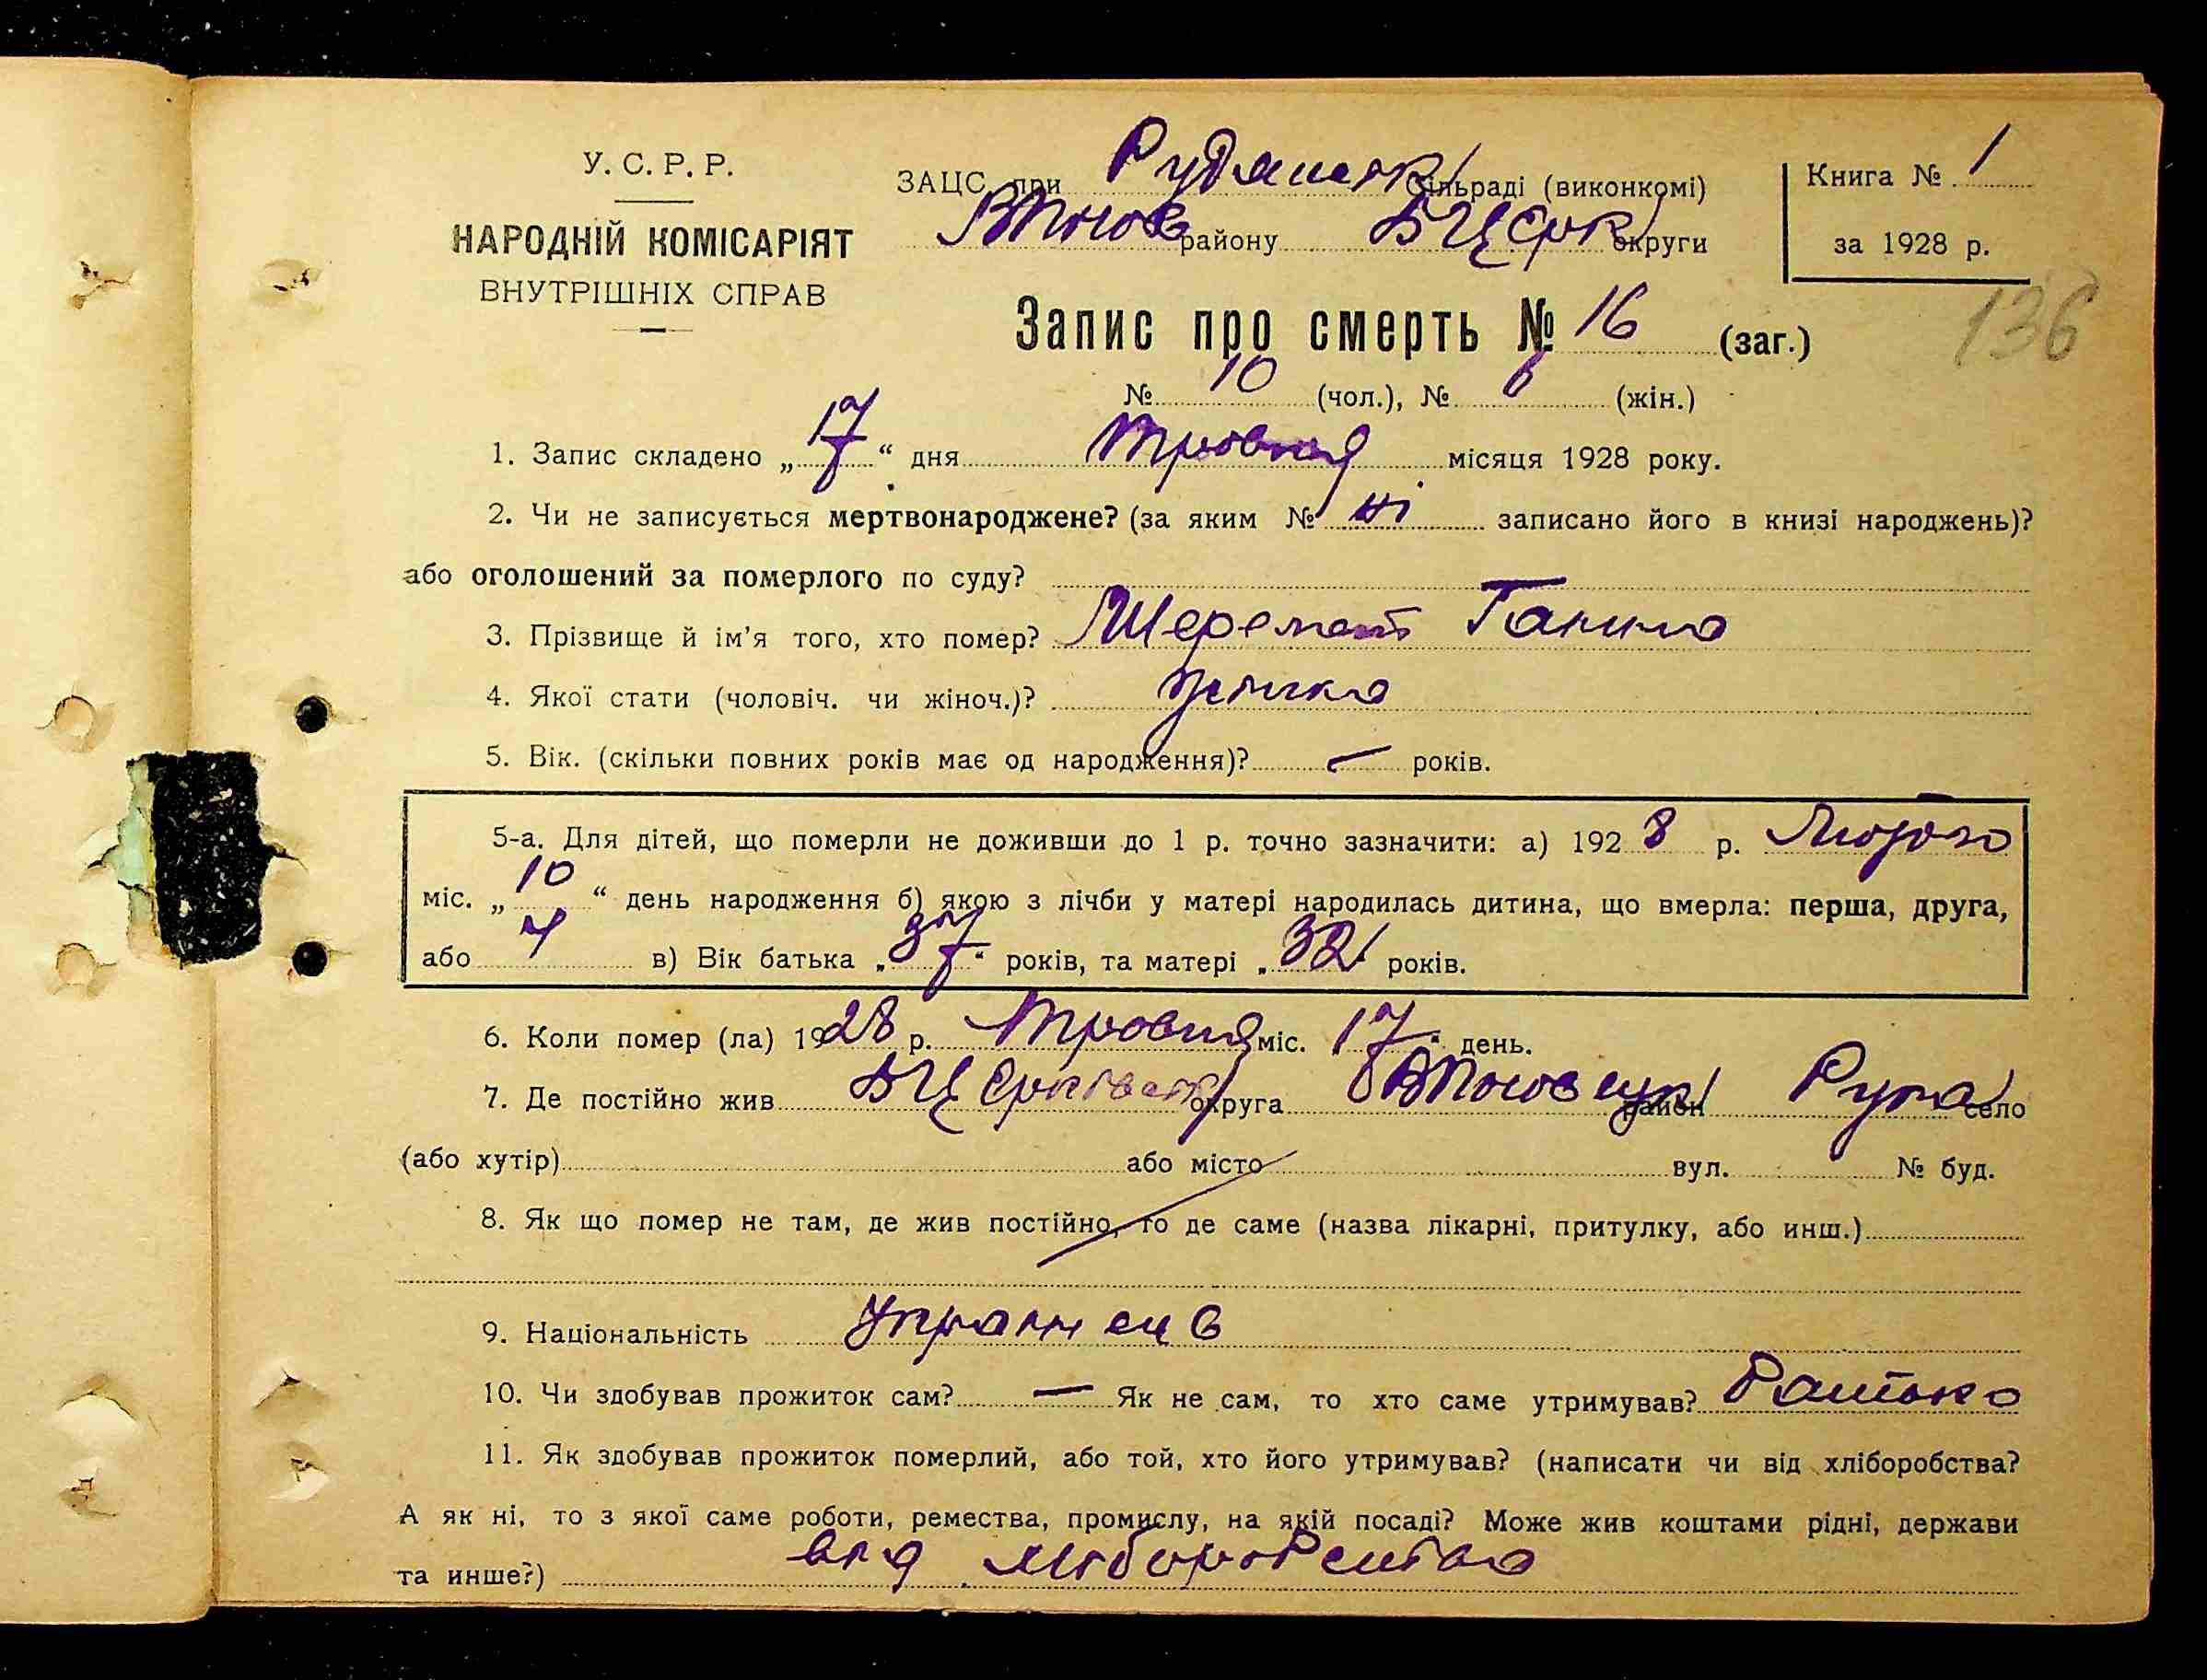 У. С. Р. Р.
НАРОДНІЙ КОМІСАРІЯТ
ВНУТРІШНІХ СПРАВ
ЗАЦС при Рудянській сільраді (виконкомі)
району БЦерк округи
Книга № 1
за 1928 р.
136
Запис про смерть № 16 (заг.)
№ 10 (чол.), № 6 (жін.)
1. Запис складено „17“ дня травня місяця 1928 року.
2. Чи не записується мертвонароджене? (за яким № ні записано його в книзі народжень)?
або оголошений за померлого по суду?
3. Прізвище й ім'я того, хто помер? Шеремет Ганна
4. Якої стати (чоловіч. чи жіноч.)? жіноча
5. Вік. (скільки повних років має од народження)? — років.
5-а. Для дітей, що померли не доживши до 1 р. точно зазначити: а) 1928 р. Лютого
міс. „10“ день народження б) якою з лічби у матері народилась дитина, що вмерла: перша, друга,
або 4 в) Вік батька „37“ років, та матері „32“ років.
6. Коли помер (ла) 1928 р. травня міс. „17“ день.
7. Де постійно жив БЦерківськ округа район Руда село
(або хутір) або місто вул. № буд.
8. Як що помер не там, де жив постійно, то де саме (назва лікарні, притулку, або инш.)
9. Національність
10. Чи здобував прожиток сам? — Як не сам, то хто саме утримував? Батько
11. Як здобував прожиток померлий, або той, хто його утримував? (написати чи від хліборобства?
А як ні, то з якої саме роботи, ремества, промислу, на якій посаді? Може жив коштами рідні, держави
та инше?) від хліборобства